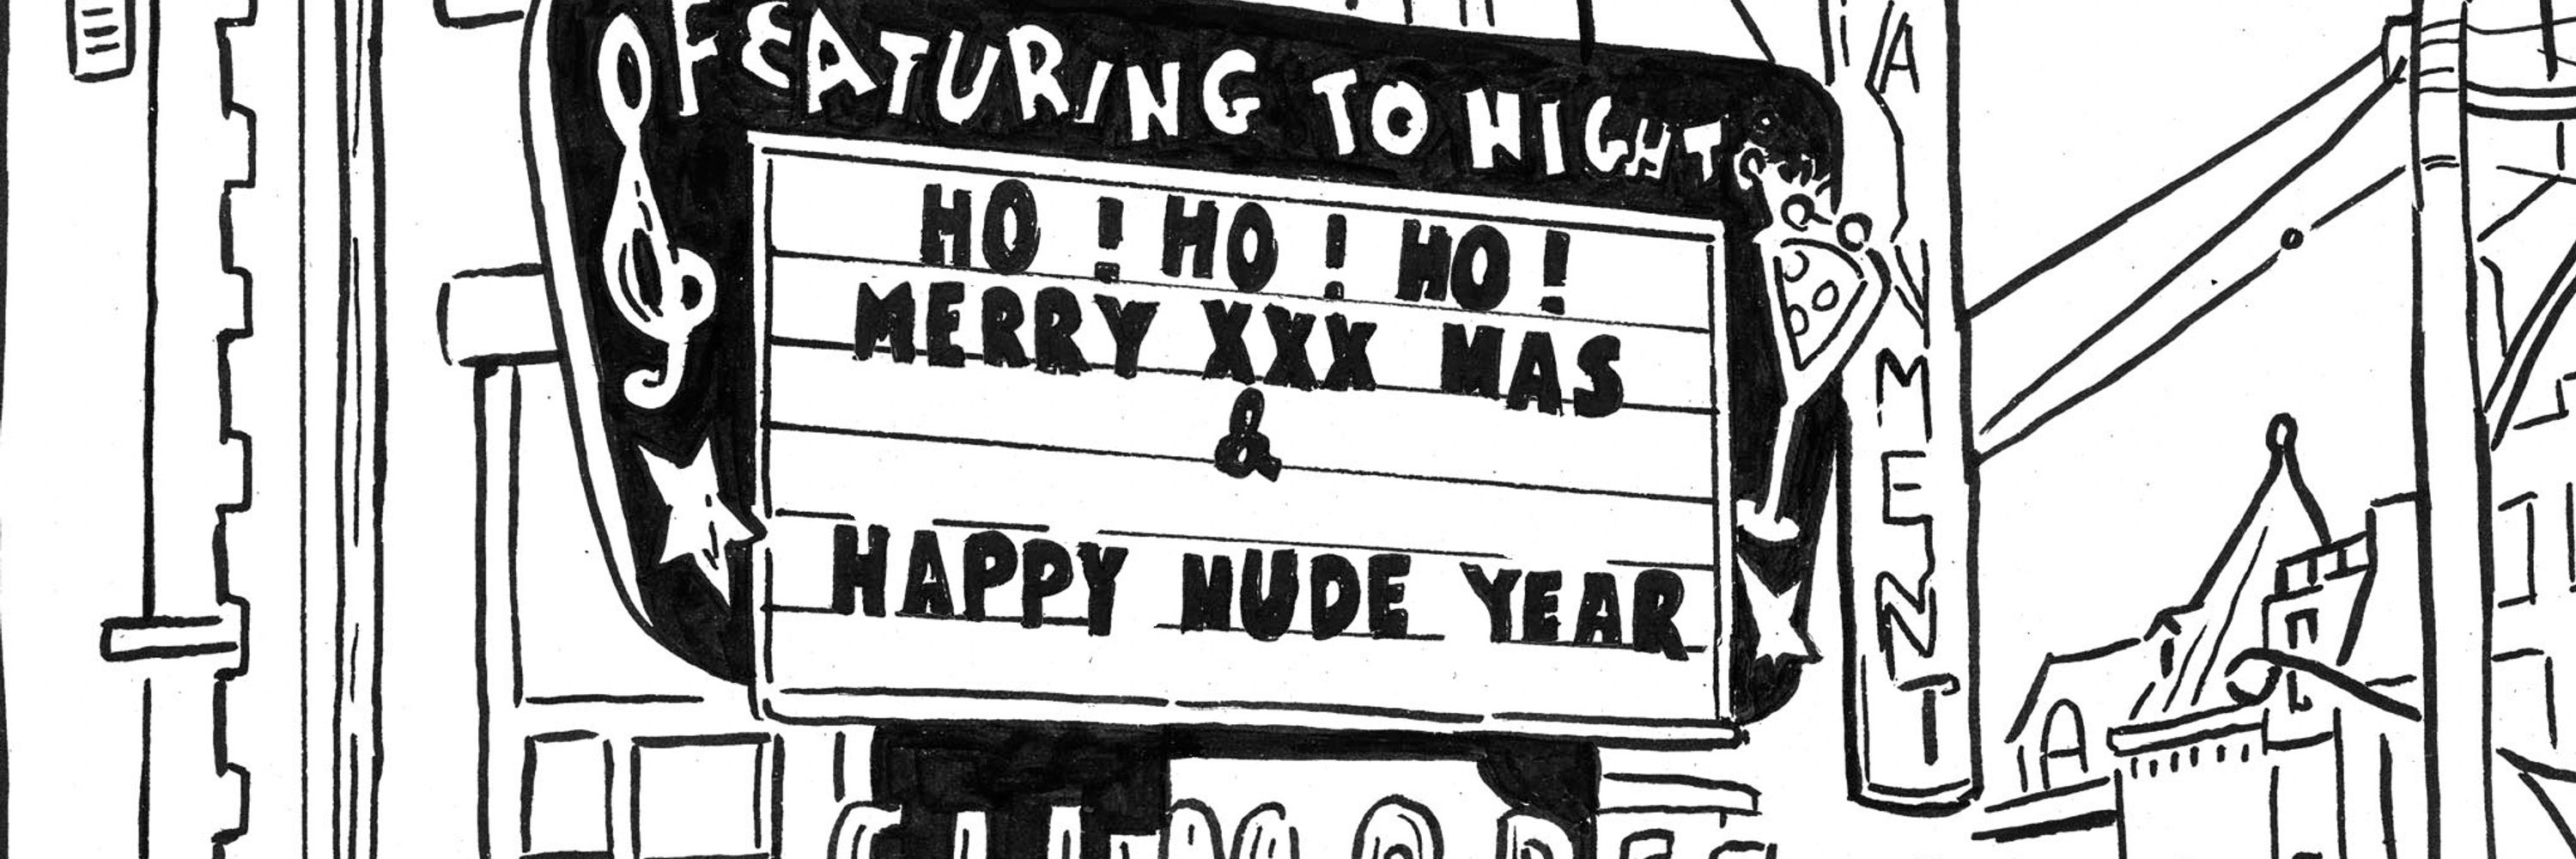 FEATURING TO NIGHT
HO ! HO ! HO !
MERRY XXX MAS
&
HAPPY NUDE YEAR